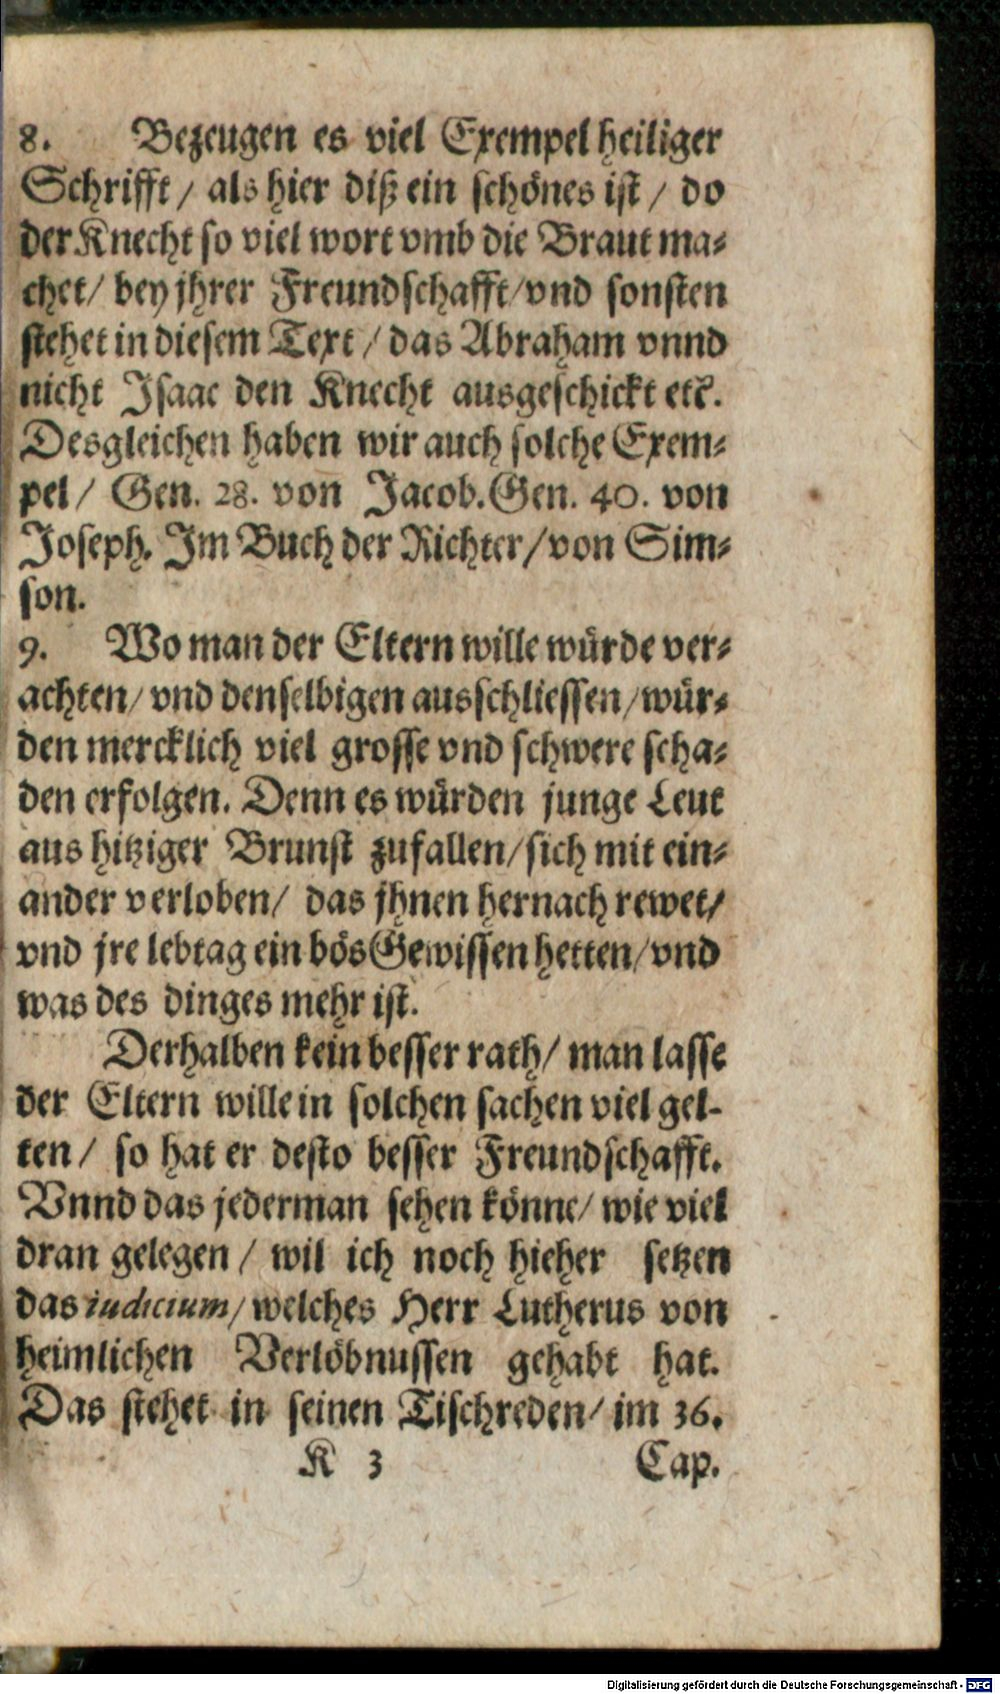 8. Bezeugen es viel Exempel heiliger
Schrifft/ als hier diß ein schönes ist/ do
der Knecht so viel wort vmb die Braut ma-
chet/ bey jhrer Freundschafft/ vnd sonsten
stehet in diesem Text/ das Abraham vnnd
nicht Isaac den Knecht ausgeschickt etc.
Desgleichen haben wir auch solche Exem-
pel/ Gen. 28. von Jacob. Gen. 40. von
Joseph. Im Buch der Richter/ von Sim-
son.
9. Wo man der Eltern wille würde ver-
achten/ vnd denselbigen ausschliessen/ wür-
den mercklich viel grosse vnd schwere scha-
den erfolgen. Denn es würden junge Leut
aus hitziger Brunst zufallen/ sich mit ein-
ander verloben/ das jhnen hernach rewet/
vnd jre lebtag ein bös Gewissen hetten/ vnd
was des dinges mehr ist.
Derhalben kein besser rath/ man lasse
der Eltern wille in solchen sachen viel gel-
ten/ so hat er desto besser Freundschafft.
Vnnd das jederman sehen könne/ wie viel
dran gelegen/ wil ich noch hieher setzen
das iudicium/ welches Herr Lutherus von
heimlichen Verlöbnussen gehabt hat.
Das stehet in seinen Tischreden/ im 36.
K 3 Cap.
Digitalisierung gefördert durch die Deutsche Forschungsgemeinschaft - DFG